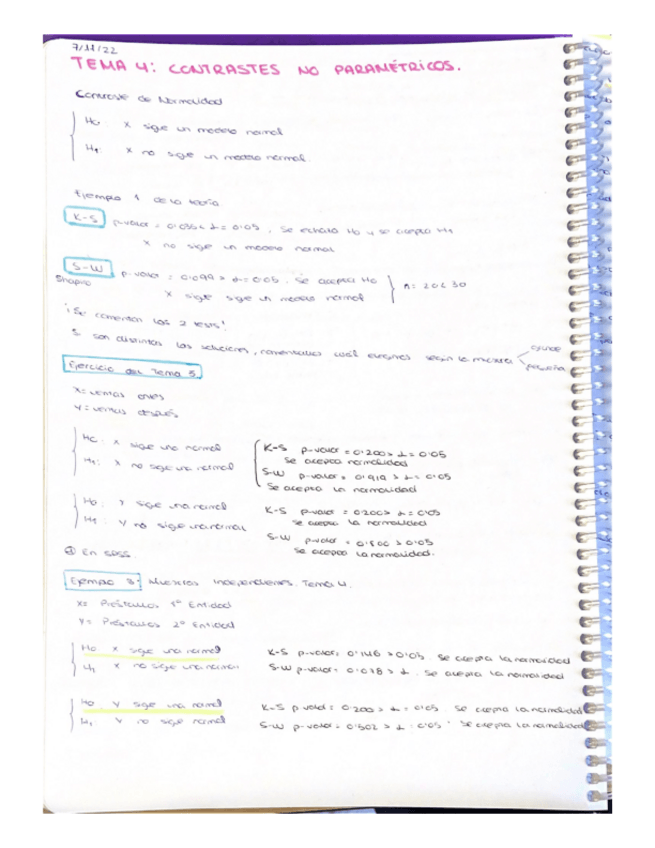 7/11/22
TEMA 4: CONTRASTES NO PARAMÉTRICOS.
Contraste de Normalidad
H0: X sigue un modelo normal
H1: X no sigue un modelo normal.
Ejemplo 1 de la teoría
K-S p-valor = 0'035 < α = 0'05. Se rechaza H0 y se acepta H1
X no sigue un modelo normal
S-W p-valor = 0'099 > α = 0'05. Se acepta H0
Shapiro X sigue un modelo normal n = 20 < 30
¡Se comentan los 2 tests!
Si son distintas las soluciones, comentamos cuál elegimos según la muestra grande
pequeña
Ejercicio del Tema 5
X = ventas antes
Y = ventas después
H0: X sigue una normal K-S p-valor = 0'200 > α = 0'05
Se acepta normalidad
H1: X no sigue una normal S-W p-valor = 0'919 > α = 0'05
Se acepta la normalidad
H0: Y sigue una normal K-S p-valor = 0'200 > α = 0'05
Se acepta la normalidad
H1: Y no sigue una normal S-W p-valor = 0'800 > 0'05
Se acepta la normalidad.
En SPSS.
Ejemplo 3: Muestras independientes. Tema 4.
X = Préstamos 1ª Entidad
Y = Préstamos 2ª Entidad
H0 X sigue una normal K-S p-valor = 0'146 > 0'05. Se acepta la normalidad
H1 X no sigue una normal S-W p-valor = 0'078 > α. Se acepta la normalidad
H0 Y sigue una normal K-S p-valor = 0'200 > α = 0'05. Se acepta la normalidad
H1 Y no sigue normal S-W p-valor = 0'502 > α = 0'05. Se acepta la normalidad